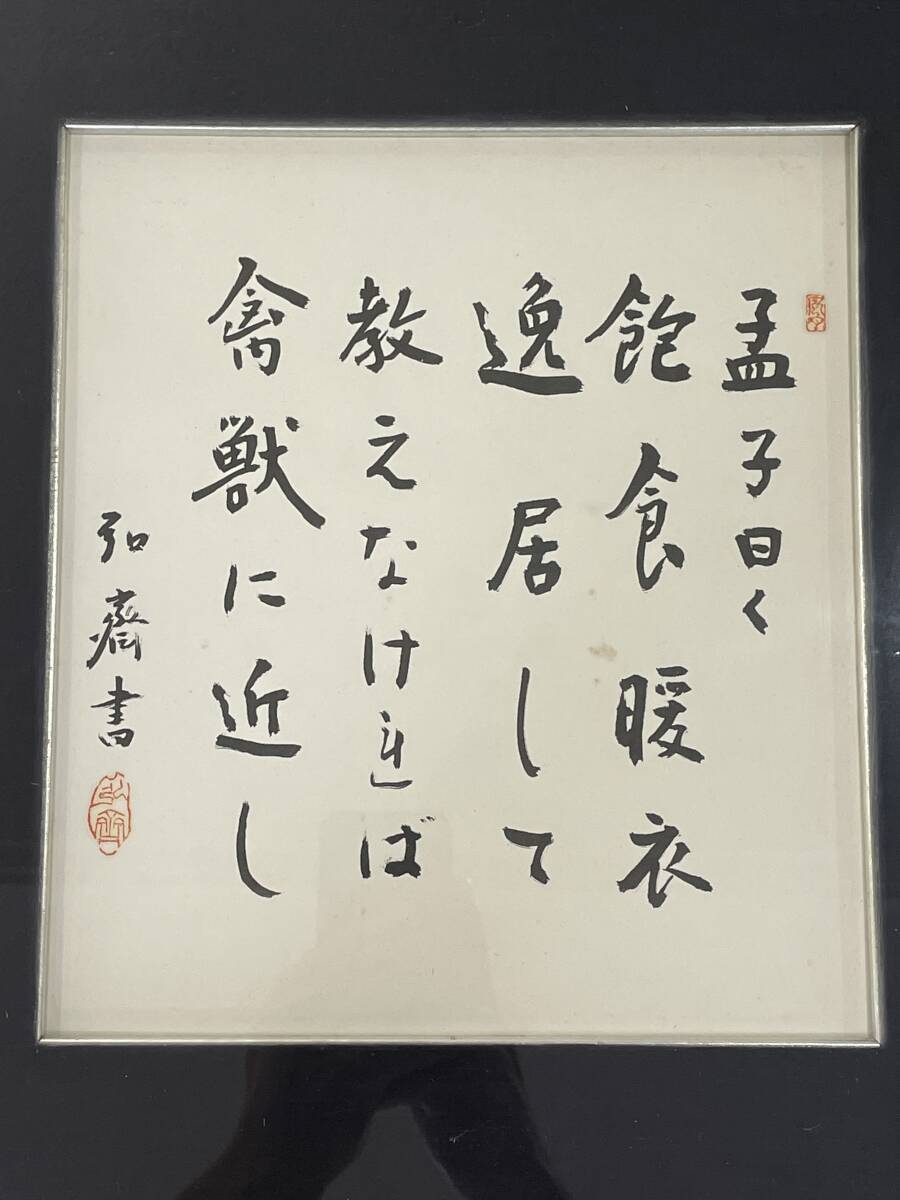 孟子曰く
飽食暖衣
逸居して
教えなければ
禽獣に近し
弘齋書
弘齋